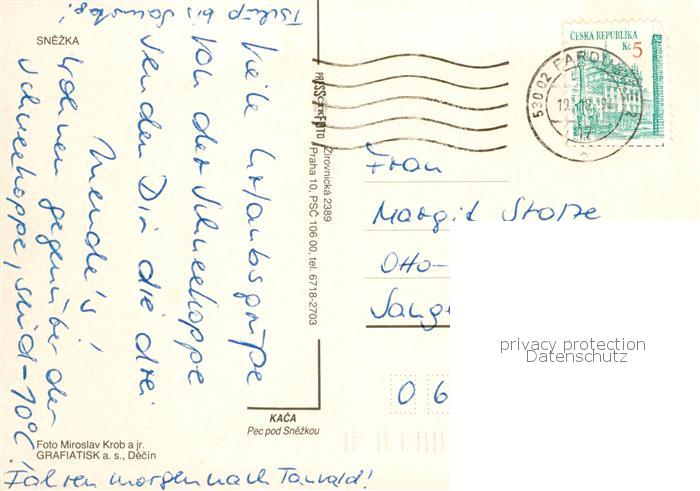 SNĚŽKA
Viele Urlaubsgrüße
Von der Schneekoppe
senden Dir die drei
Mende's!
wohnen gegenüber der
Schneekoppe, sind -10°C!
Fahren morgen nach Tanvald!
Tschüß bis
PRESS FOTO
Žirovnická 2389
Praha 10, PSČ 106 00, tel. 6718-2703
KAČA
Pec pod Sněžkou
Foto Miroslav Krob a jr.
GRAFIATISK a. s., Děčín
ČESKÁ REPUBLIKA
Kč 5
530 02 PARDUBICE 2
Frau
Margit Stolze
Otto-
Sang
0 6
privacy protection
Datenschutz